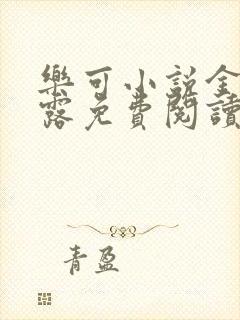 樂可小說全
露免費閱讀
青盈